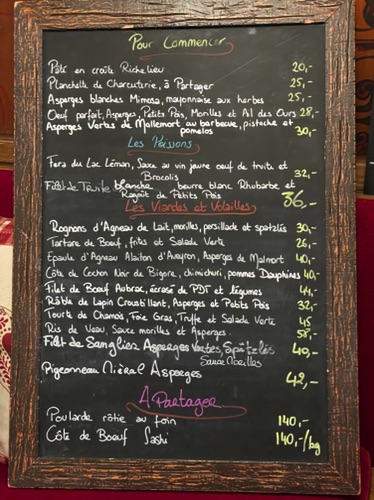 Pour Commencer
Pâté en croûte Richelieu 20,-
Planchette de Charcuterie, à Partager 25,-
Asperges blanches Mimosa, mayonnaise aux herbes 25,-
Oeuf parfait, Asperges, Petits Pois, Morilles et Ail des Ours 28,-
Asperges Vertes de Mallemort au barbecue, pistache et
pomelos 30,-
Les Poissons
Fera du Lac Léman, Sauce au vin jaune oeuf de truite et
Brocolis 32,-
Filet de Truite blanche, beurre blanc Rhubarbe et
Ragoût de Petits Pois 36,-
Les Viandes et Volailles
Rognons d'Agneau de Lait, morilles, persillade et spätzlés 30,-
Tartare de Boeuf, frites et Salade Verte 26,-
Epaule d'Agneau Alaiton d'Aveyron, Asperges de Malmort 40,-
Côte de Cochon Noir de Bigore, chimichuri, pommes Dauphines 40,-
Filet de Boeuf Aubrac, écrasé de PDT et légumes 44,-
Râble de Lapin Croustillant, Asperges et Petits Pois 32,-
Tourte de Chamois, Foie Gras, Truffe et Salade Verte 45
Ris de Veau, Sauce morilles et Asperges 58,-
Filet de Sanglier Asperges Vertes, Spätzlés 40,-
Sauce Morilles
Pigeonneau Miéral Asperges 42,-
A Partager
Poularde rôtie au foin 140,-
Côte de Boeuf Sashi 140,-/kg